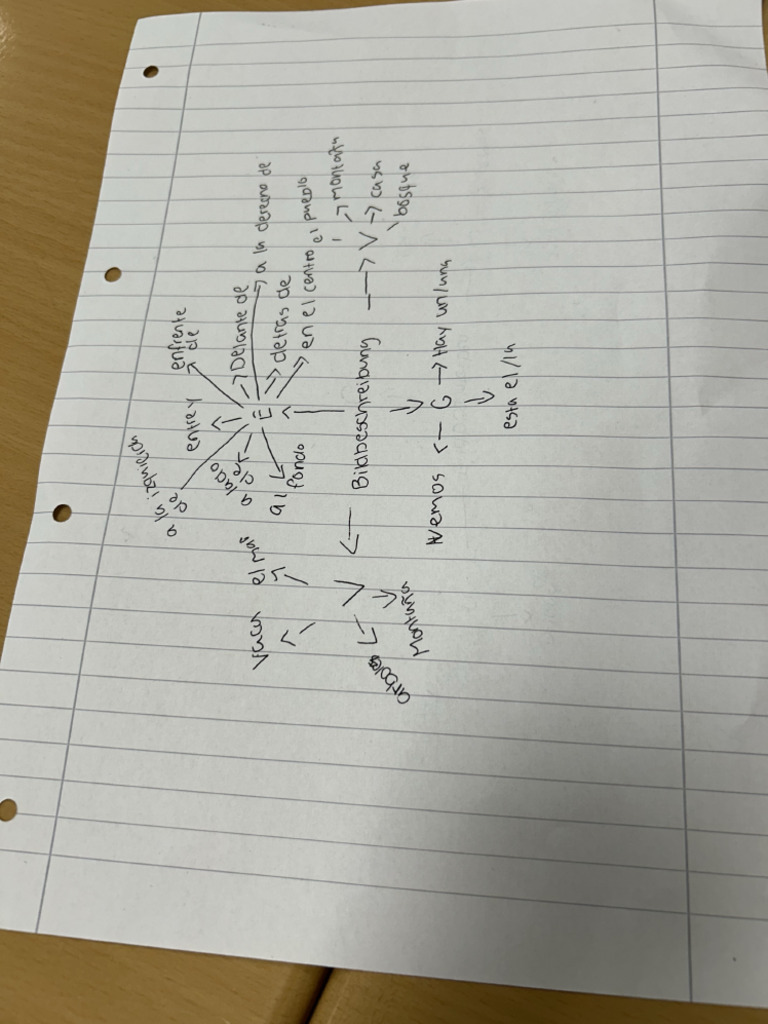 a la izquierda
de
entre y
enfrente
de
a lado
de
al
fondo
E
Delante de
a la derecha de
detras de
en el centro
el pueblo
el mar
vacas
V
arboles
Montaña
Bildbeschreibung
V
montaña
casa
bosque
Vemos
G
Hay un/una
esta el/la